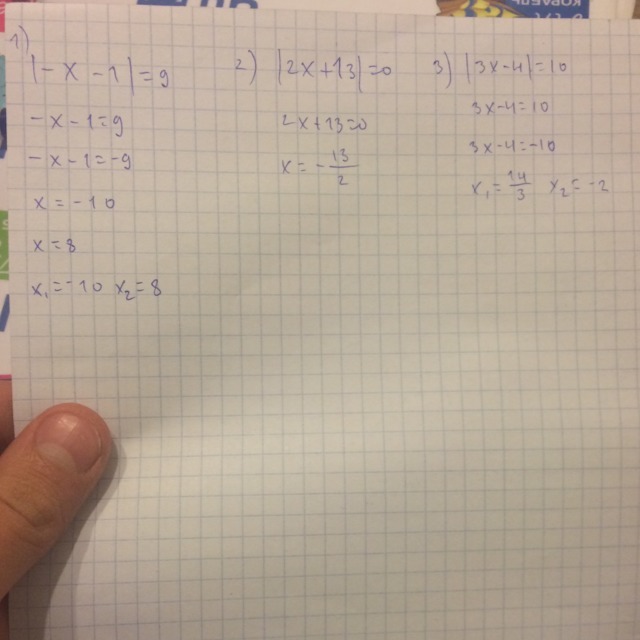 1)
|-x-1|=9
-x-1=9
-x-1=-9
x=-10
x=8
x₁=-10 x₂=8
2) |2x+13|=0
2x+13=0
x=-13/2
3) |3x-4|=10
3x-4=10
3x-4=-10
x₁=14/3 x₂=-2